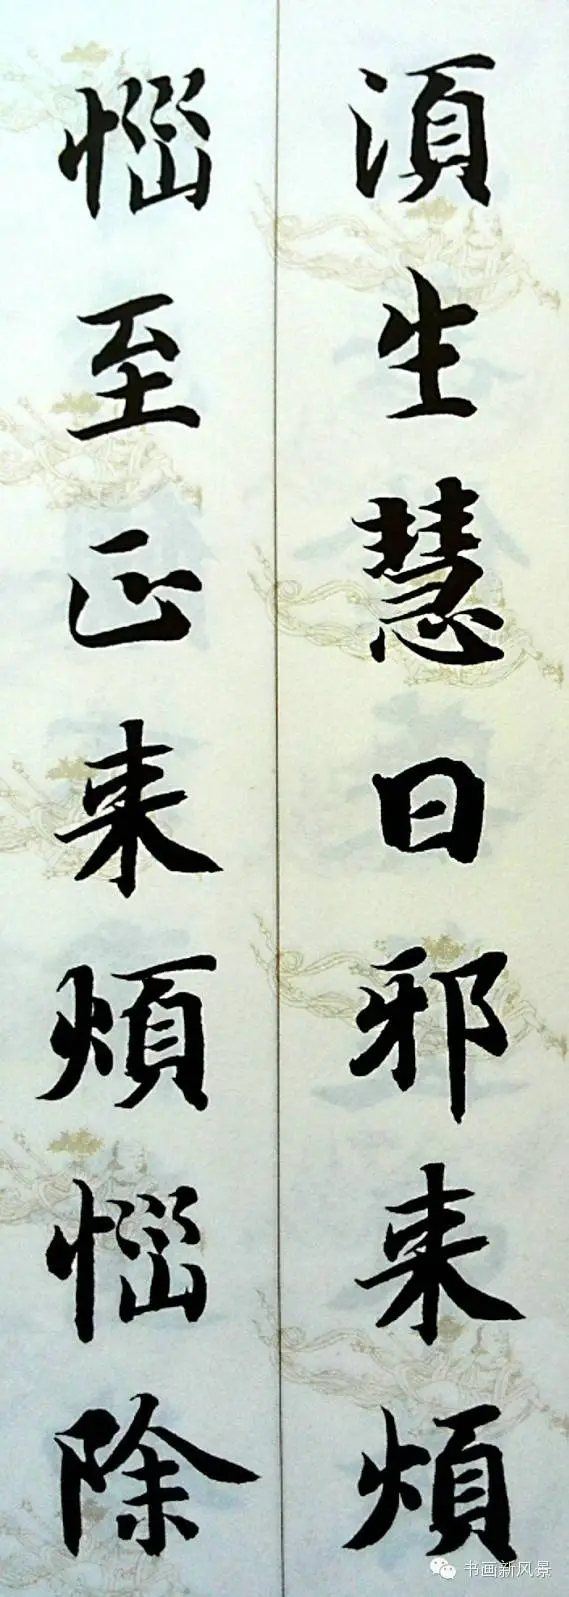 須生慧日邪来煩
惱至正来煩惱除
书画新风景